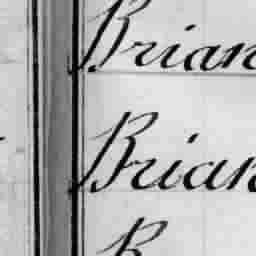 Brian
Brian
B